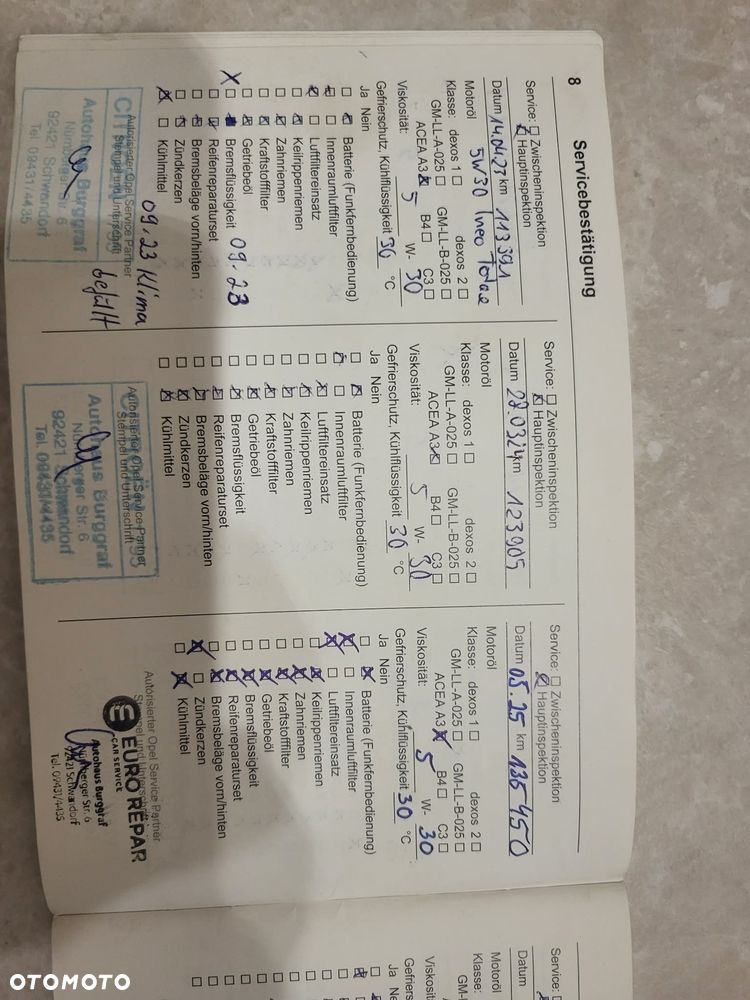 8
Servicebestätigung
Service: Zwischeninspektion
Hauptinspektion
Datum 14.04.23 km 113391
Motoröl 5W30 Ineo
Klasse: dexos 1 dexos 2
GM-LL-A-025 GM-LL-B-025
ACEA A3 B4 C3
Viskosität: 5 W- 30
Gefrierschutz, Kühlflüssigkeit 30 °C
Ja Nein
Batterie (Funkfernbedienung)
Innenraumluftfilter
Luftfiltereinsatz
Keilrippenriemen
Zahnriemen
Kraftstofffilter
Getriebeöl
Bremsflüssigkeit 09.23
Reifenreparaturset
Bremsbeläge vorn/hinten
Zündkerzen
Kühlmittel
09.23 Klima
befüllt
Autorisierter Opel Service Partner
Stempel und Unterschrift
Autohaus Burggraf
Nürnberger Str. 6
92421 Schwandorf
Tel. 09431/4435
Service: Zwischeninspektion
Hauptinspektion
Datum 22.03.24 km 123905
Motoröl
Klasse: dexos 1 dexos 2
GM-LL-A-025 GM-LL-B-025
ACEA A3 B4 C3
Viskosität: 5 W- 30
Gefrierschutz, Kühlflüssigkeit 30 °C
Ja Nein
Batterie (Funkfernbedienung)
Innenraumluftfilter
Luftfiltereinsatz
Keilrippenriemen
Zahnriemen
Kraftstofffilter
Getriebeöl
Bremsflüssigkeit
Reifenreparaturset
Bremsbeläge vorn/hinten
Zündkerzen
Kühlmittel
Autorisierter Opel Service Partner
Stempel und Unterschrift
Autohaus Burggraf
Nürnberger Str. 6
92421 Schwandorf
Tel. 09431/4435
Service: Zwischeninspektion
Hauptinspektion
Datum 05.25 km 135450
Motoröl
Klasse: dexos 1 dexos 2
GM-LL-A-025 GM-LL-B-025
ACEA A3 B4 C3
Viskosität: 5 W- 30
Gefrierschutz, Kühlflüssigkeit 30 °C
Ja Nein
Batterie (Funkfernbedienung)
Innenraumluftfilter
Luftfiltereinsatz
Keilrippenriemen
Zahnriemen
Kraftstofffilter
Getriebeöl
Bremsflüssigkeit
Reifenreparaturset
Bremsbeläge vorn/hinten
Zündkerzen
Kühlmittel
Autorisierter Opel Service Partner
Stempel und Unterschrift
EURO REPAR
CAR SERVICE
Autohaus Burggraf
Nürnberger Str. 6
92421 Schwandorf
Tel. 09431/4435
Service:
Datum
Motoröl
Klasse:
Ja Nein
OTOMOTO